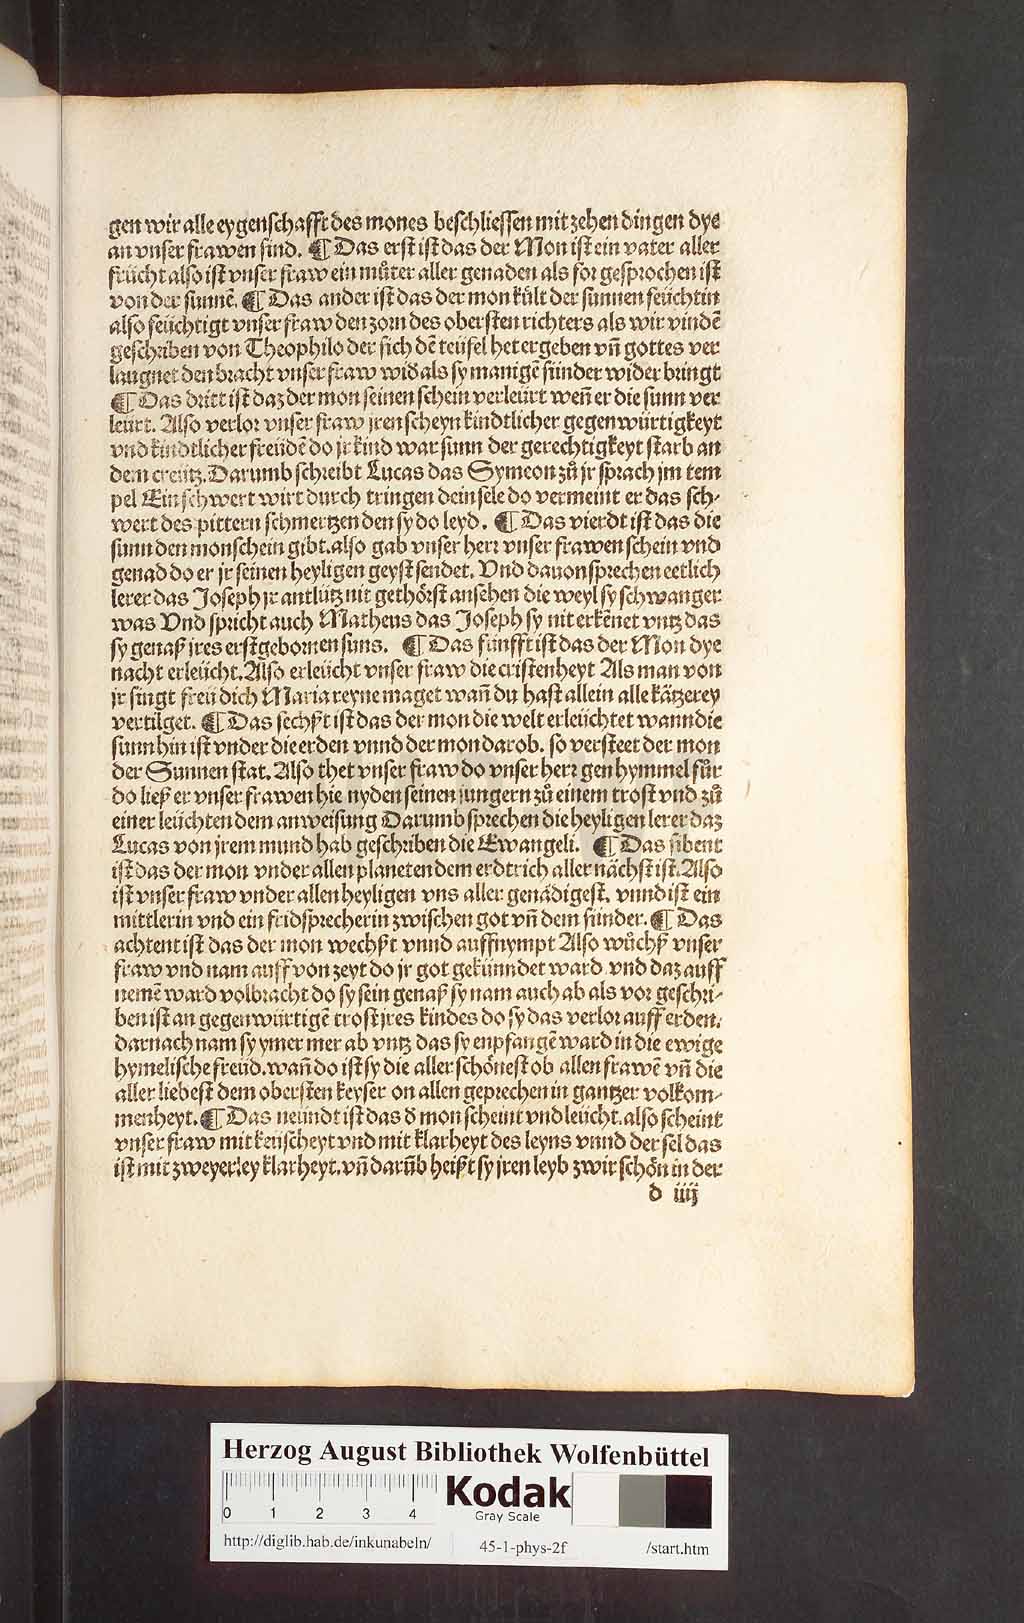 gen wir alle eygenschafft des mones beschliessen mit zehen dingen dye
an vnser frawen sind. ¶ Das erst ist das der Mon ist ein vater aller
frücht also ist vnser fraw ein můter aller genaden als for gesprochen ist
von der sunnē. ¶ Das ander ist das der mon kült der sunnen feüchtin
also feüchtigt vnser fraw den zorn des obersten richters als wir vindē
geschriben von Theophilo der sich dē teüfel het ergeben vn̄ gottes ver
laugnet den bracht vnser fraw wid als sy manigē sünder wider bringt
¶ Das dritt ist daz der mon seinen schein verleürt wen̄ er die sunn ver
leürt. Also verlor vnser fraw jren scheyn kindtlicher gegenwürtigkeyt
vnd kindtlicher freüdē do jr kind war sunn der gerechtigkeyt starb an
dem creütz. Darumb schreibt Lucas das Symeon zů jr sprach jm tem
pel Ein schwert wirt durch tringen dein sele do vermeint er das sch-
wert des pittern schmertzen den sy do leyd. ¶ Das vierdt ist das die
sunn den monschein gibt. also gab vnser herr vnser frawen schein vnd
genad do er jr seinen heyligen geyst sendet. Vnd dauon sprechen eetlich
lerer das Joseph jr antlütz nit gethörst ansehen die weyl sy schwanger
was Vnd spricht auch Matheus das Joseph sy nit erkēnet vntz das
sy genaß jres erstgebornen suns. ¶ Das fünfft ist das der Mon dye
nacht erleücht. Also erleücht vnser fraw die cristenheyt Als man von
jr singt freü dich Maria reyne maget wan̄ du hast allein alle kätzerey
vertilget. ¶ Das sechßt ist das der mon die welt erleüchtet wann die
sunn hin ist vnder die erden vnnd der mon darob. so versteet der mon
der Sunnen stat. Also thet vnser fraw do vnser herr gen hymmel fůr
do ließ er vnser frawen hie nyden seinen jungern zů einem trost vnd zů
einer leüchten dem anweisung Darumb sprechen die heyligen lerer daz
Lucas von jrem mund hab geschriben die Ewangeli. ¶ Das sibent
ist das der mon vnder allen planeten dem erdtrich aller nächst ist. Also
ist vnser fraw vnder allen heyligen vns aller genädigest. vnnd ist ein
mittlerin vnd ein fridsprecherin zwischen got vn̄ dem sünder. ¶ Das
achtent ist das der mon wechßt vnnd auffnympt Also wůchß vnser
fraw vnd nam auff von zeyt do jr got gekünndet ward. vnd daz auff
nemē ward volbracht do sy sein genaß sy nam auch ab als vor geschri-
ben ist an gegenwürtigē trost jres kindes do sy das verlor auff erden.
darnach nam sy ymer mer ab vntz das sy enpfangē ward in die ewige
hymelische freüd. wan̄ do ist sy die aller schönest ob allen frawē vn̄ die
aller liebest dem obersten keyser on allen geprechen in gantzer volkom-
menheyt. ¶ Das neündt ist das d mon scheint vnd leücht. also scheint
vnser fraw mit keüscheyt vnd mit klarheyt des leyns vnnd der sel das
ist mit zweyerley klarheyt. vn̄ darūb heißt sy jren leyb zwir schön in der
d iiij
Herzog August Bibliothek Wolfenbüttel
0 1 2 3 4
Kodak
Gray Scale
http://diglib.hab.de/inkunabeln/ 45-1-phys-2f /start.htm